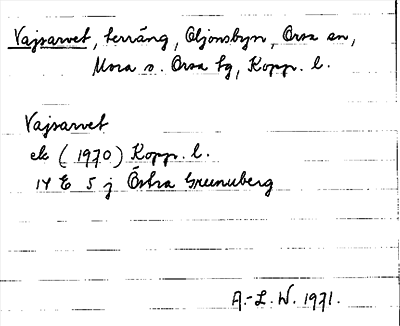 Vajsarvet, terräng, Oljonsbyn, Orsa sn,
Mora o. Orsa tg, Kopp. l.
Vajsarvet
ek (1970) Kopp. l.
14 E 5 j Östra Grunuberg
A.-L. W. 1971.